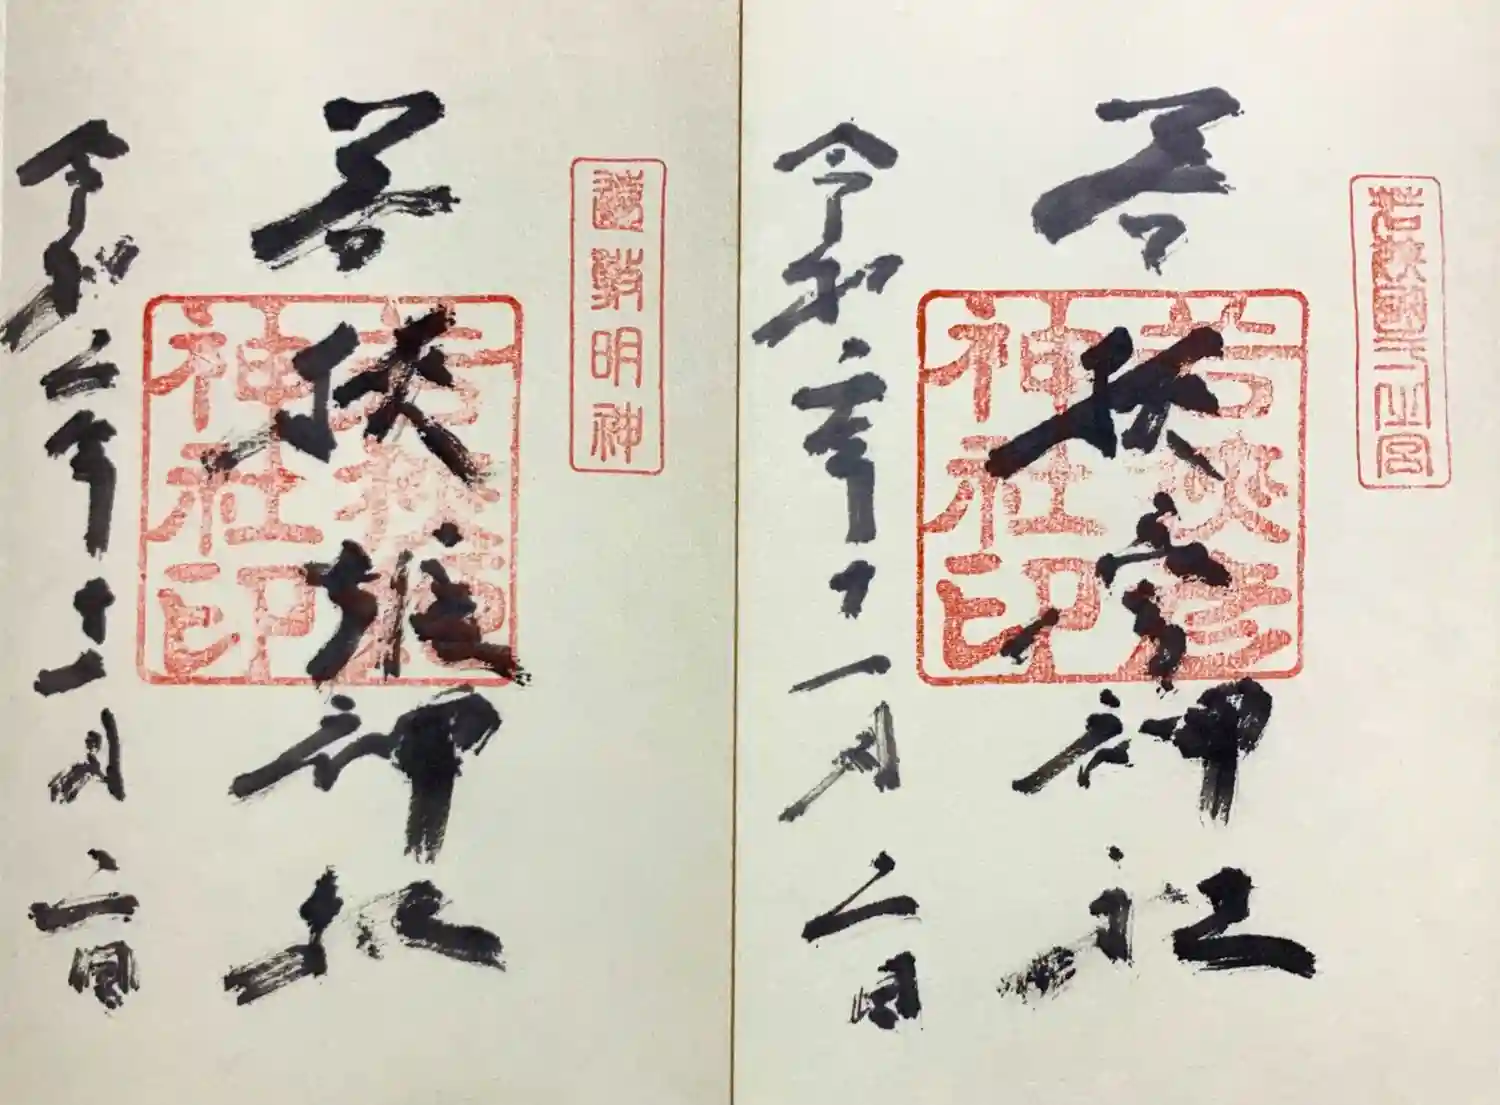 若狹國一之宮
若狭彦神社
若狭彦
神社印
令和二年十一月二日
遠敷明神
若狭姫神社
若狭姫
神社印
令和二年十一月二日